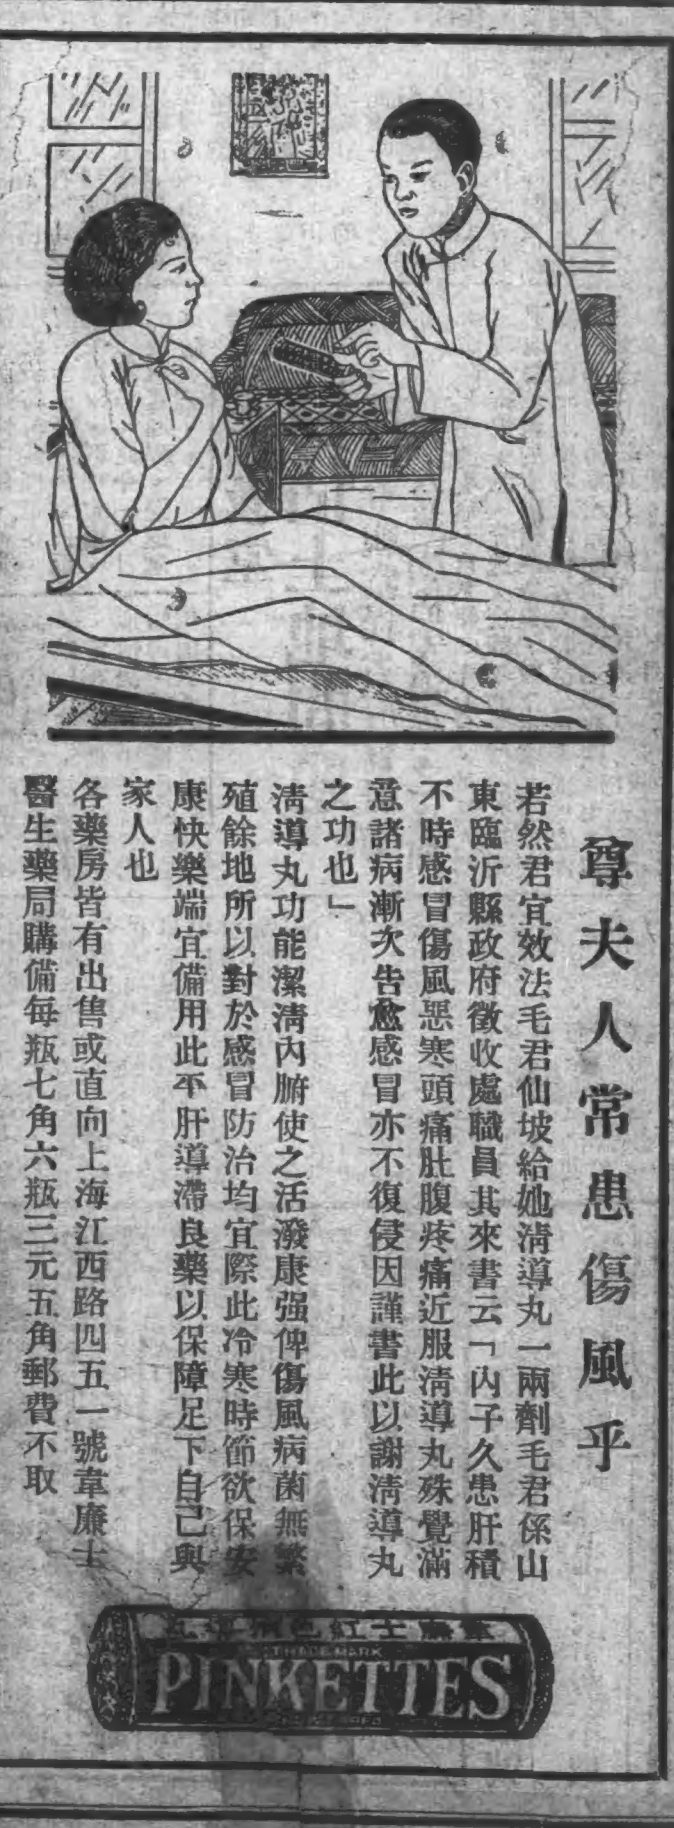 尊夫人常患傷風乎
若然君宜效法毛君仙坡給她淸導丸一兩劑毛君係山
東臨沂縣政府徵收處職員其來書云「內子久患肝積
不時感冒傷風惡寒頭痛肚腹疼痛近服淸導丸殊覺滿
意諸病漸次告愈感冒亦不復侵因謹書此以謝淸導丸
之功也」
淸導丸功能潔淸內腑使之活潑康强俾傷風病菌無繁
殖餘地所以對於感冒防治均宜際此冷寒時節欲保安
康快樂端宜備用此平肝導滯良藥以保障足下自己與
家人也
各藥房皆有出售或直向上海江西路四五一號韋廉士
醫生藥局購備每瓶七角六瓶三元五角郵費不取
韋廉士紅色淸導丸
TRADE MARK
PINKETTES